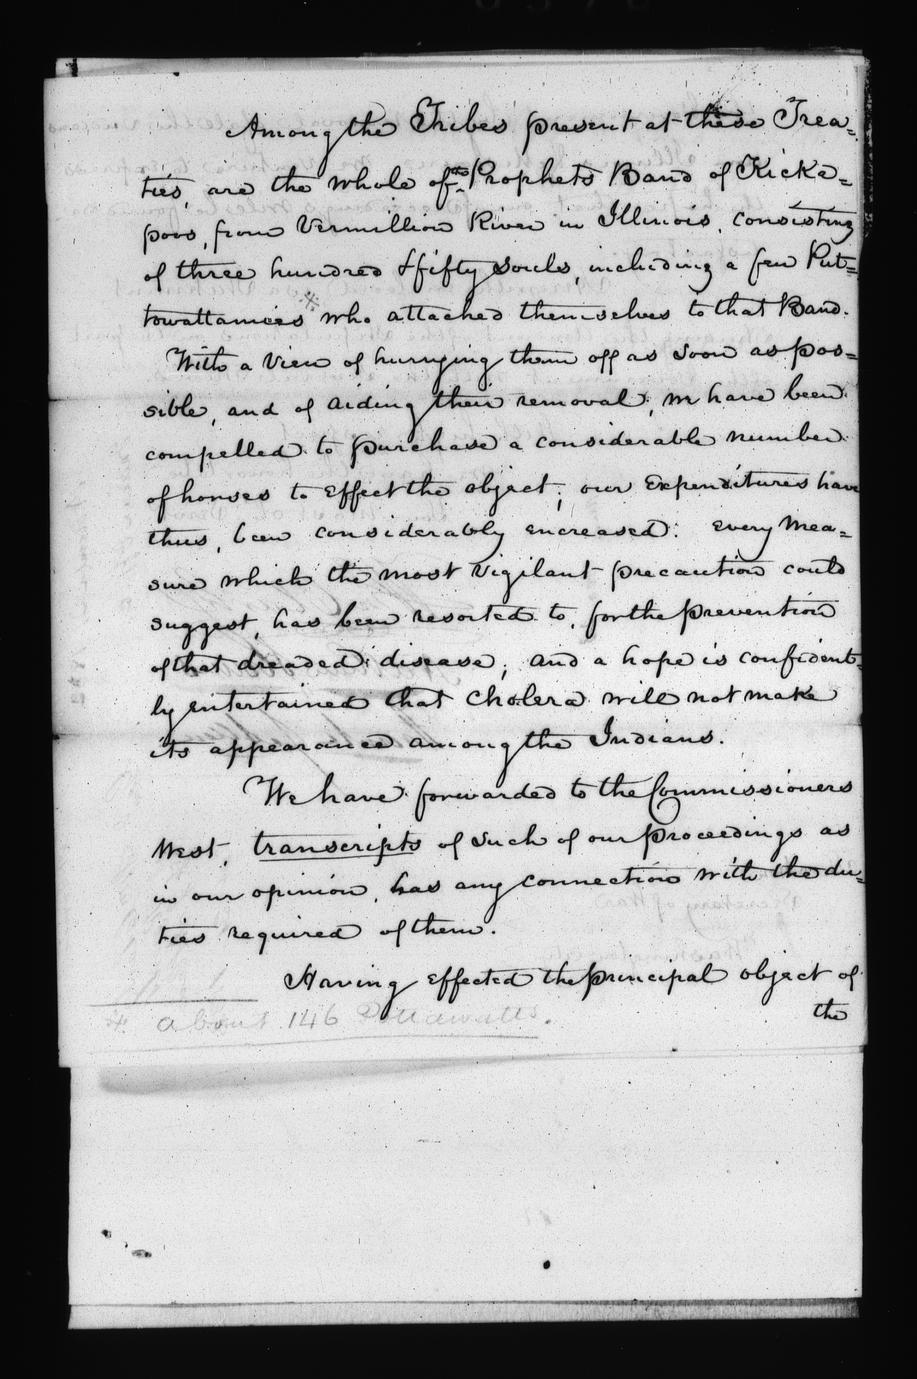 Among the Tribes present at these Trea=
ties, are the whole of the Prophets Band of Kicka=
poos, from Vermillion River in Illinois, consisting
of three hundred & fifty souls, including a few Put=
towattamies * who attached themselves to that Band.
With a view of hurrying them off as soon as pos=
sible, and of aiding their removal, we have been
compelled to purchase a considerable number
of horses to effect the object; our expenditures have
thus, been considerably encreased. Every mea=
sure which the most vigilant precaution could
suggest, has been resorted to, for the prevention
of that dreaded disease; and a hope is confident=
ly entertained that cholera will not make
its appearance among the Indians.
We have forwarded to the Commissioners
West, transcripts of such of our proceedings as
in our opinion, has any connection with the du=
ties required of them.
Having effected the principal object of
the
* about 146 Pottawatts.